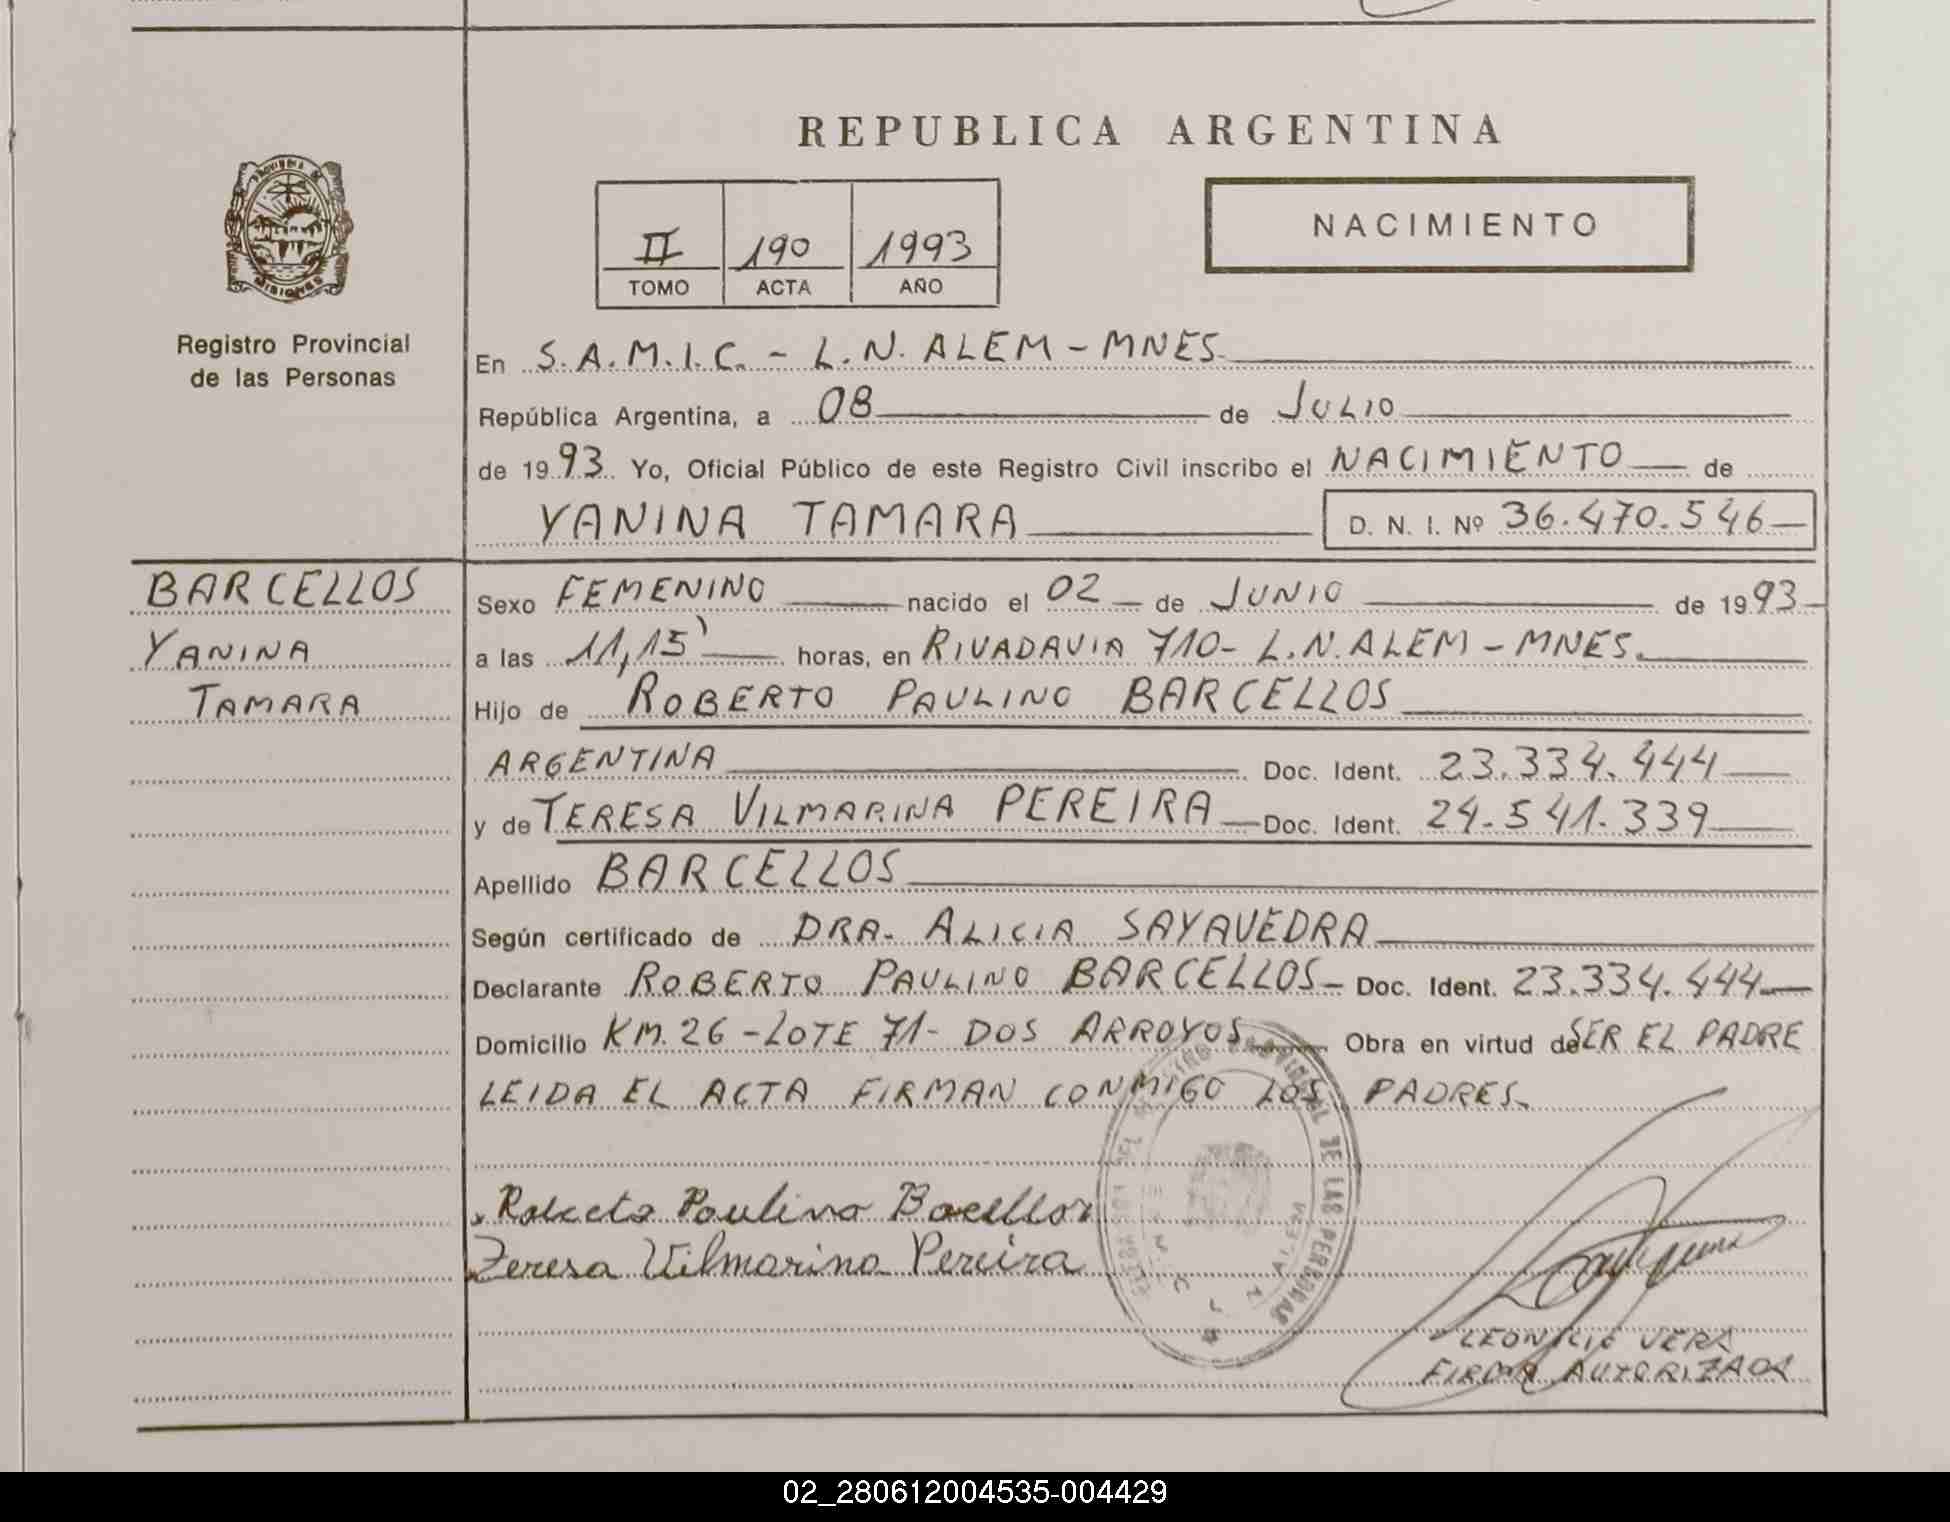 REPUBLICA ARGENTINA
PROVINCIA DE
MISIONES
II 190 1993
TOMO ACTA AÑO
NACIMIENTO
Registro Provincial
de las Personas
En S.A.M.I.C. - L.N. ALEM - MNES.
República Argentina, a 08 de JULIO
de 1993. Yo, Oficial Público de este Registro Civil inscribo el NACIMIENTO de
YANINA TAMARA D. N. I. Nº 36.470.546
BARCELLOS
YANINA
TAMARA
Sexo FEMENINO nacido el 02 de JUNIO de 1993
a las 11,15' horas, en RIVADAVIA 710- L.N. ALEM - MNES.
Hijo de ROBERTO PAULINO BARCELLOS
ARGENTINA Doc. Ident. 23.334.444
y de TERESA VILMARINA PEREIRA Doc. Ident. 24.541.339
Apellido BARCELLOS
Según certificado de DRA. ALICIA SAYAVEDRA
Declarante ROBERTO PAULINO BARCELLOS Doc. Ident. 23.334.444
Domicilio KM. 26 - LOTE 71- DOS ARROYOS Obra en virtud de SER EL PADRE
LEIDA EL ACTA FIRMAN CONMIGO LOS PADRES.
Roberto Paulino Barcellos
Teresa Vilmarina Pereira
PROVINCIAL DE LAS PERSONAS
ALEM
VERA
FIRMA AUTORIZADA
02_280612004535-004429